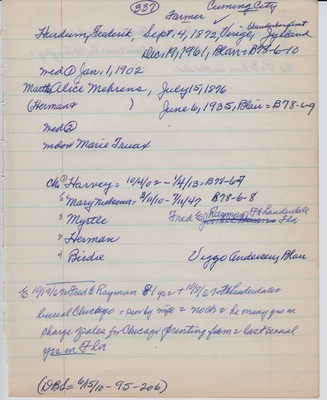 (337)
Cuming City
Farmer
Hurdum, Frederik, Sept. 4, 1872, Jylland
Dec. 19, 1961, Blair = B78-6-10
wed ① Jan. 1, 1902
Martha Alice Mehrens, July 15, 1876
(Hermans ) June 6, 1935, Blair = B78-6-9
wed ②
widow Marie Truax
Ch: ① Harvey = 10/4/02 - 1/4/13 = B78-6-7
5 Mary - 3/11/10 - 7/11/47 B78-6-8
3 Myrtle Fred E. Rayman, Ft Lauderdale Fla
2 Herman
4 Birdie Viggo Andersen, Blair
10/19/67 Fred E Rayman 81 yrs + 10/9/67 Ft Lauderdale +
buried Chicago = surv by wife = no ch = he many yrs in
charge sales for Chicago printing firm = last several
yrs in Fla
(DBS = 6/15/10 - 95-206)